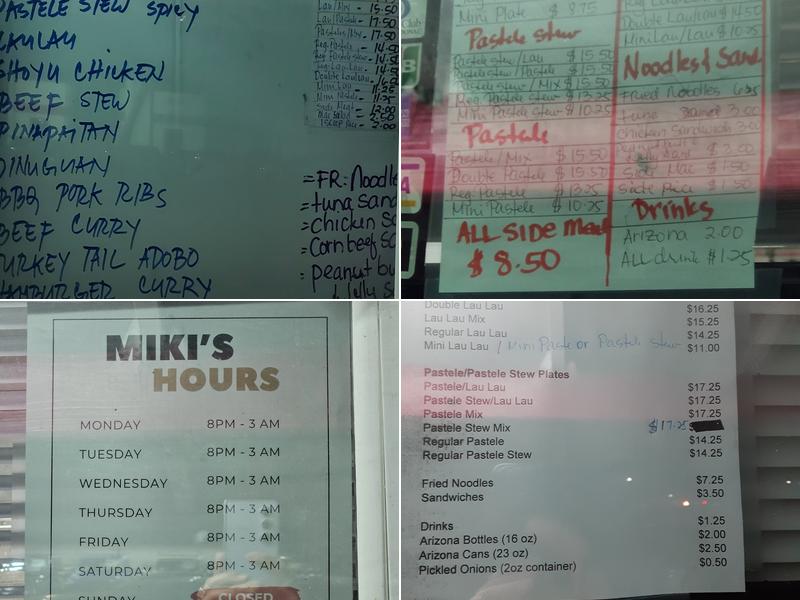 PASTELE STEW SPICY
LAULAU
SHOYU CHICKEN
BEEF STEW
PINAPAITAN
DINUGUAN
BBQ PORK RIBS
BEEF CURRY
TURKEY TAIL ADOBO
HAMBURGER CURRY
Lau/Mix - 15.50
Lau/Pastele - 17.50
Pasteles/Mix - 17.50
= FR: Noodle
= tuna sand
= chicken
= Corn beef
= peanut bu
Mini Plate $ 8.75
Pastele Stew
Pastele stew/Lau $ 15.50
Pastele stew/Pastele $ 15.50
Pastele stew/Mix $ 15.50
Reg Pastele Stew $ 13.25
Mini Pastele Stew $ 10.25
Pastele
Pastele/Mix $ 15.50
Double Pastele $ 15.50
Reg Pastele $ 13.25
Mini Pastele $ 10.25
ALL SIDE Meat
$ 8.50
Double Laulau $ 14.50
Mini Lau/Lau $ 10.25
Noodles & Sand
Fried Noodles 6.25
Tuna 3.00
Chicken Sandwich 3.00
$ 3.00
Side Mac $ 1.50
Side Rice $ 1.50
Drinks
Arizona 2.00
ALL drink $ 1.25
MIKI'S
HOURS
MONDAY 8PM - 3 AM
TUESDAY 8PM - 3 AM
WEDNESDAY 8PM - 3 AM
THURSDAY 8PM - 3 AM
FRIDAY 8PM - 3 AM
SATURDAY 8PM - 3 AM
SUNDAY CLOSED
Double Lau Lau $16.25
Lau Lau Mix $15.25
Regular Lau Lau $14.25
Mini Lau Lau / Mini Pastele or Pastele Stew $11.00
Pastele/Pastele Stew Plates
Pastele/Lau Lau $17.25
Pastele Stew/Lau Lau $17.25
Pastele Mix $17.25
Pastele Stew Mix $17.25
Regular Pastele $14.25
Regular Pastele Stew $14.25
Fried Noodles $7.25
Sandwiches $3.50
Drinks $1.25
Arizona Bottles (16 oz) $2.00
Arizona Cans (23 oz) $2.50
Pickled Onions (2oz container) $0.50